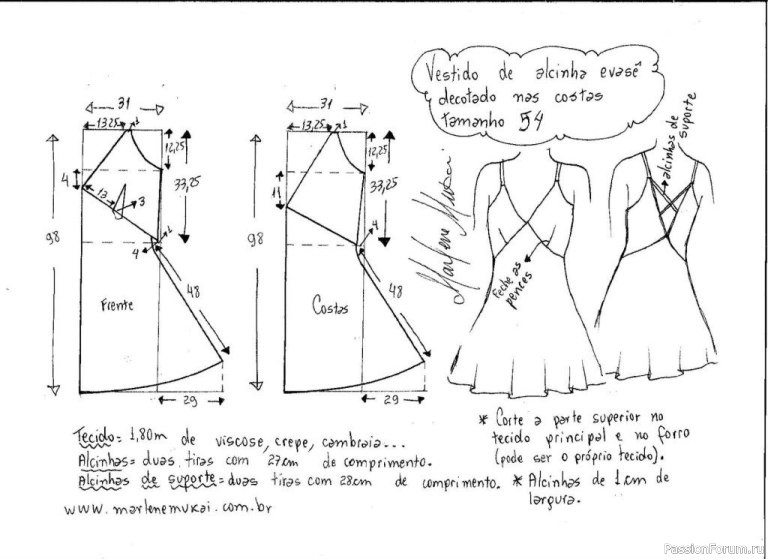 Vestido de alcinha evasê
decotado nas costas
tamanho 54
31
13,25
1
12,25
4
13
3
33,25
98
1
4
48
Frente
29
31
13,25
1
12,25
11
33,25
98
4
48
Costas
29
Marlene Mukai
Feche as
pences
alcinhas de
suporte
Tecido= 1,80m de viscose, crepe, cambraia...
Alcinhas= duas tiras com 27cm de comprimento.
Alcinhas de suporte= duas tiras com 28cm de comprimento.
www.marlenemukai.com.br
* Corte a parte superior no
tecido principal e no forro
(pode ser o próprio tecido).
* Alcinhas de 1cm de
largura.
PassionForum.ru